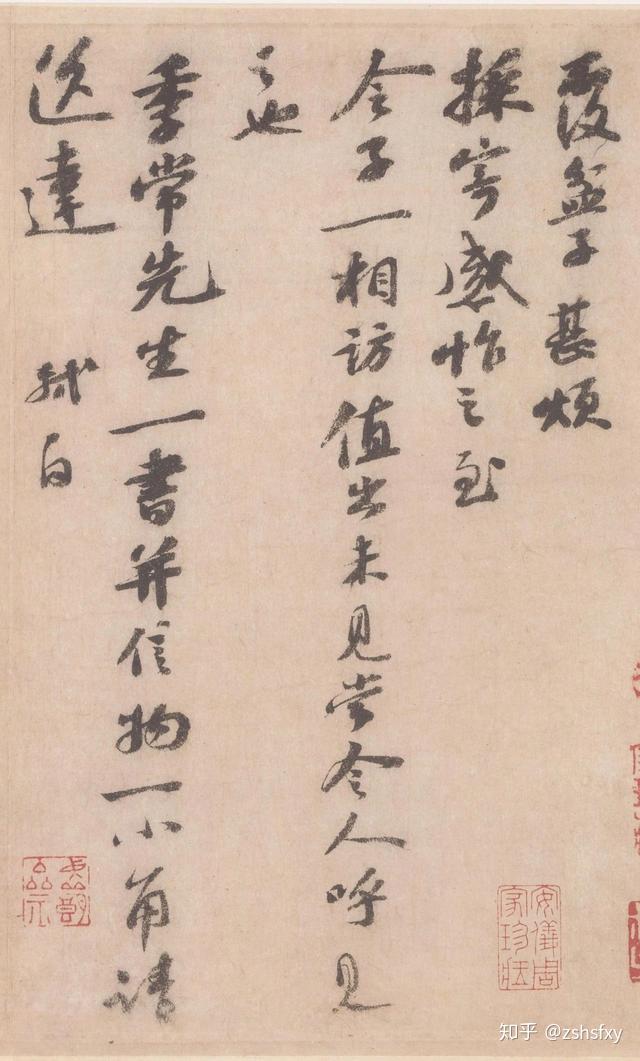 覆盆子甚煩
採寄感怍之至
令子一相訪值出未見當令人呼見
之也
季常先生一書并信物一小角請
送達
軾白
安儀周家珍藏
知乎 @zshsfxy